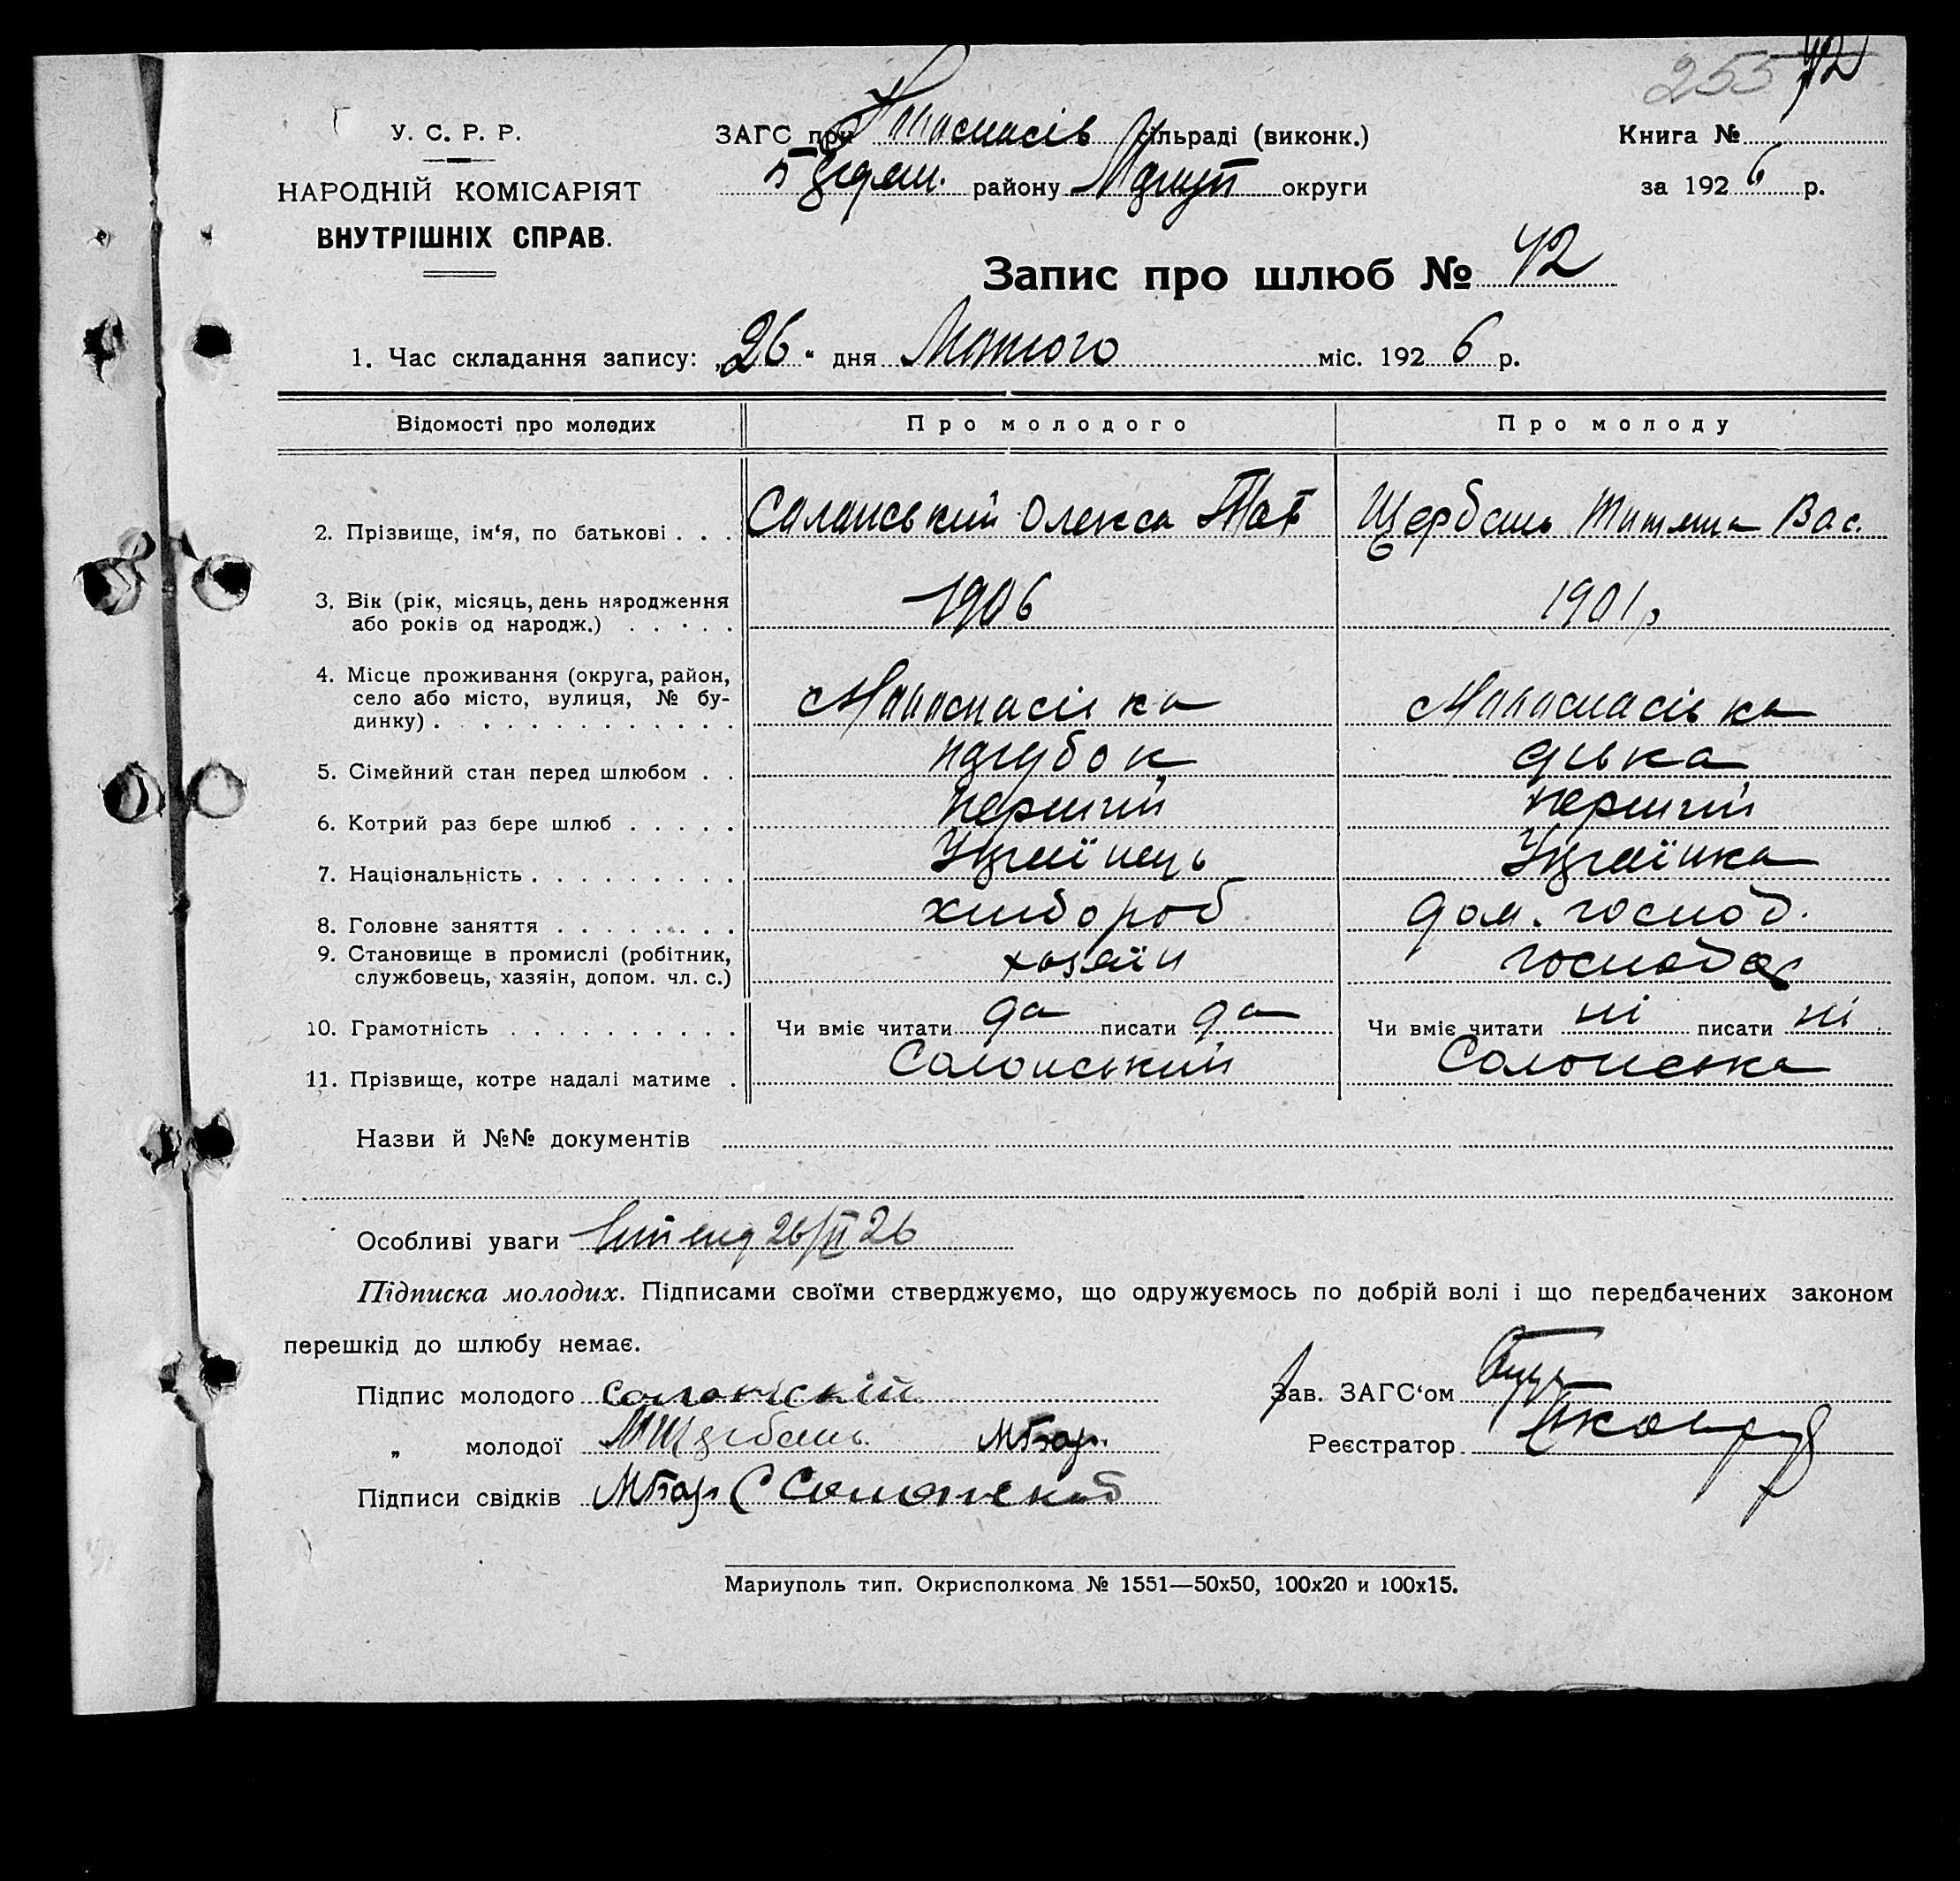 255 42
У. С. Р. Р.
НАРОДНІЙ КОМІСАРІЯТ
ВНУТРІШНІХ СПРАВ.
ЗАГС при сільраді (виконк.)
району округи
Книга №
за 1926 р.
Запис про шлюб № 42
1. Час складання запису: „26“ дня Лютого міс. 1926 р.
Відомості про молодих Про молодого Про молоду
2. Прізвище, ім‘я, по батькові . . . Саланський Олекса Щербань Вас.
3. Вік (рік, місяць, день народження
або років од народж.) . . . . . 1906 1901 р
4. Місце проживання (округа, район,
село або місто, вулиця, № бу-
динку) . . . . . . . . . . . . .
5. Сімейний стан перед шлюбом . . парубок дівка
6. Котрий раз бере шлюб . . . . . перший перший
7. Національність . . . . . . . . . Українець Українка
8. Головне заняття . . . . . . . . хлібороб дом. господ.
9. Становище в промислі (робітник,
службовець, хазяін, допом. чл. с.) хазяїн
10. Грамотність . . . . . . . . . . . Чи вміє читати да писати да Чи вміє читати ні писати ні
11. Прізвище, котре надалі матиме . Солонський Солонська
Назви й №№ документів
Особливі уваги 26/II 26
Підписка молодих. Підписами своїми стверджуємо, що одружуємось по добрій волі і що передбачених законом
перешкід до шлюбу немає.
Підпис молодого Солонскій Зав. ЗАГС‘ом
„ молодої Щербань Реєстратор
Підписи свідків
Мариуполь тип. Окрисполкома № 1551—50х50, 100х20 и 100х15.